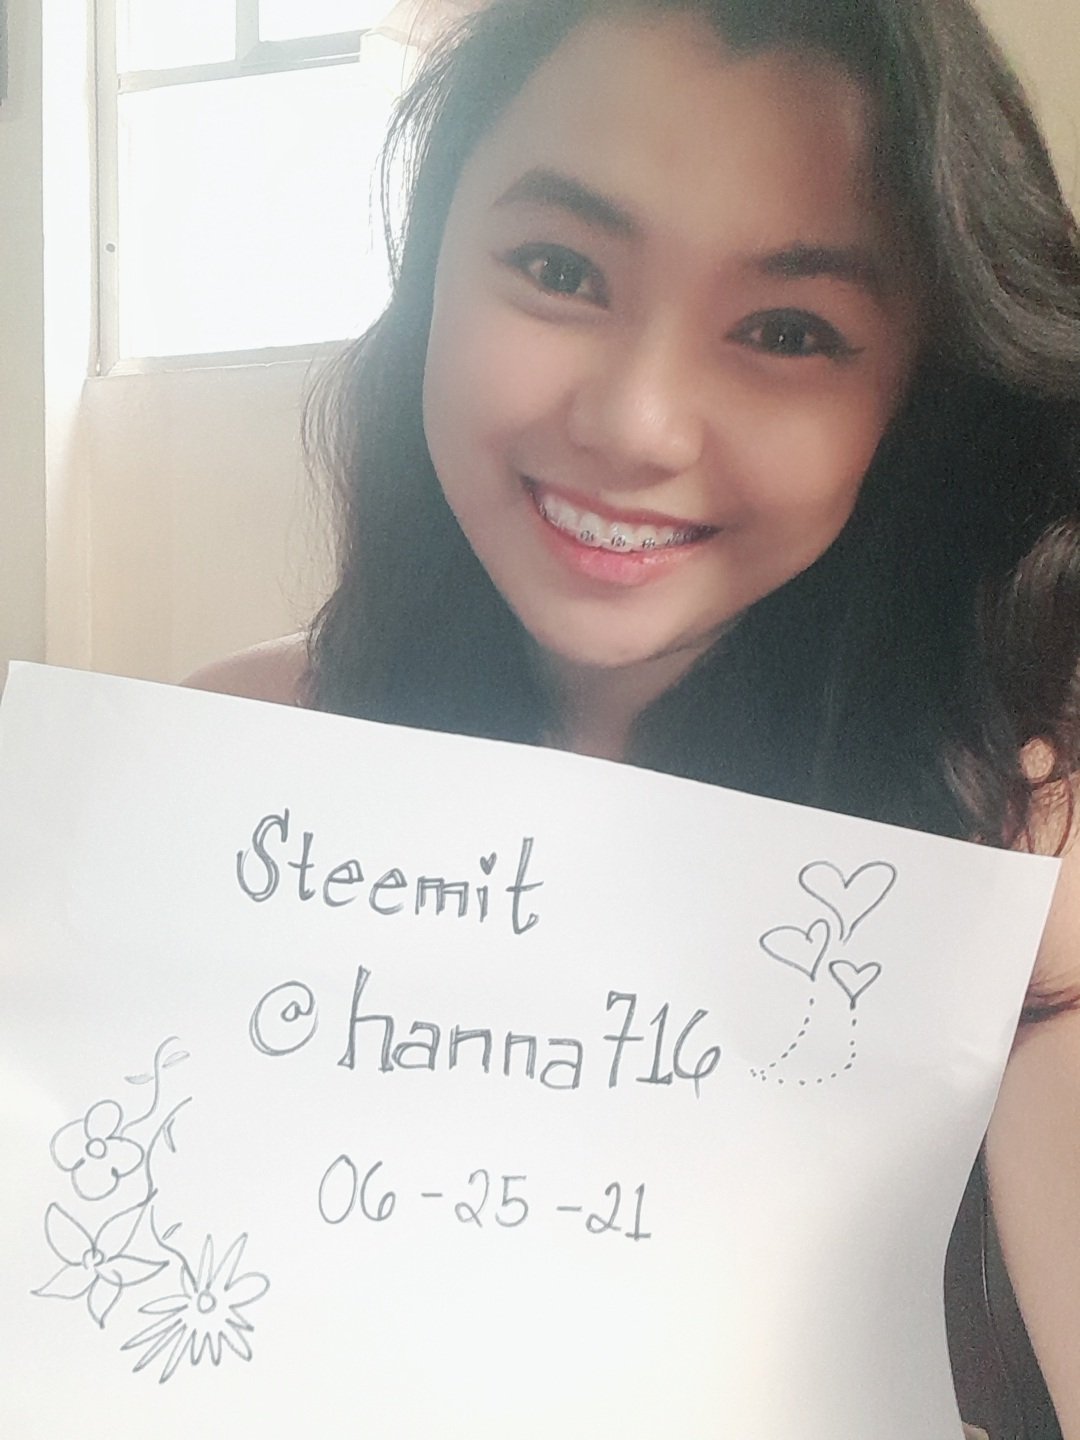 Steemit
@hanna716
06-25-21